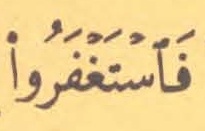 فَٱسۡتَغۡفَرُواْ